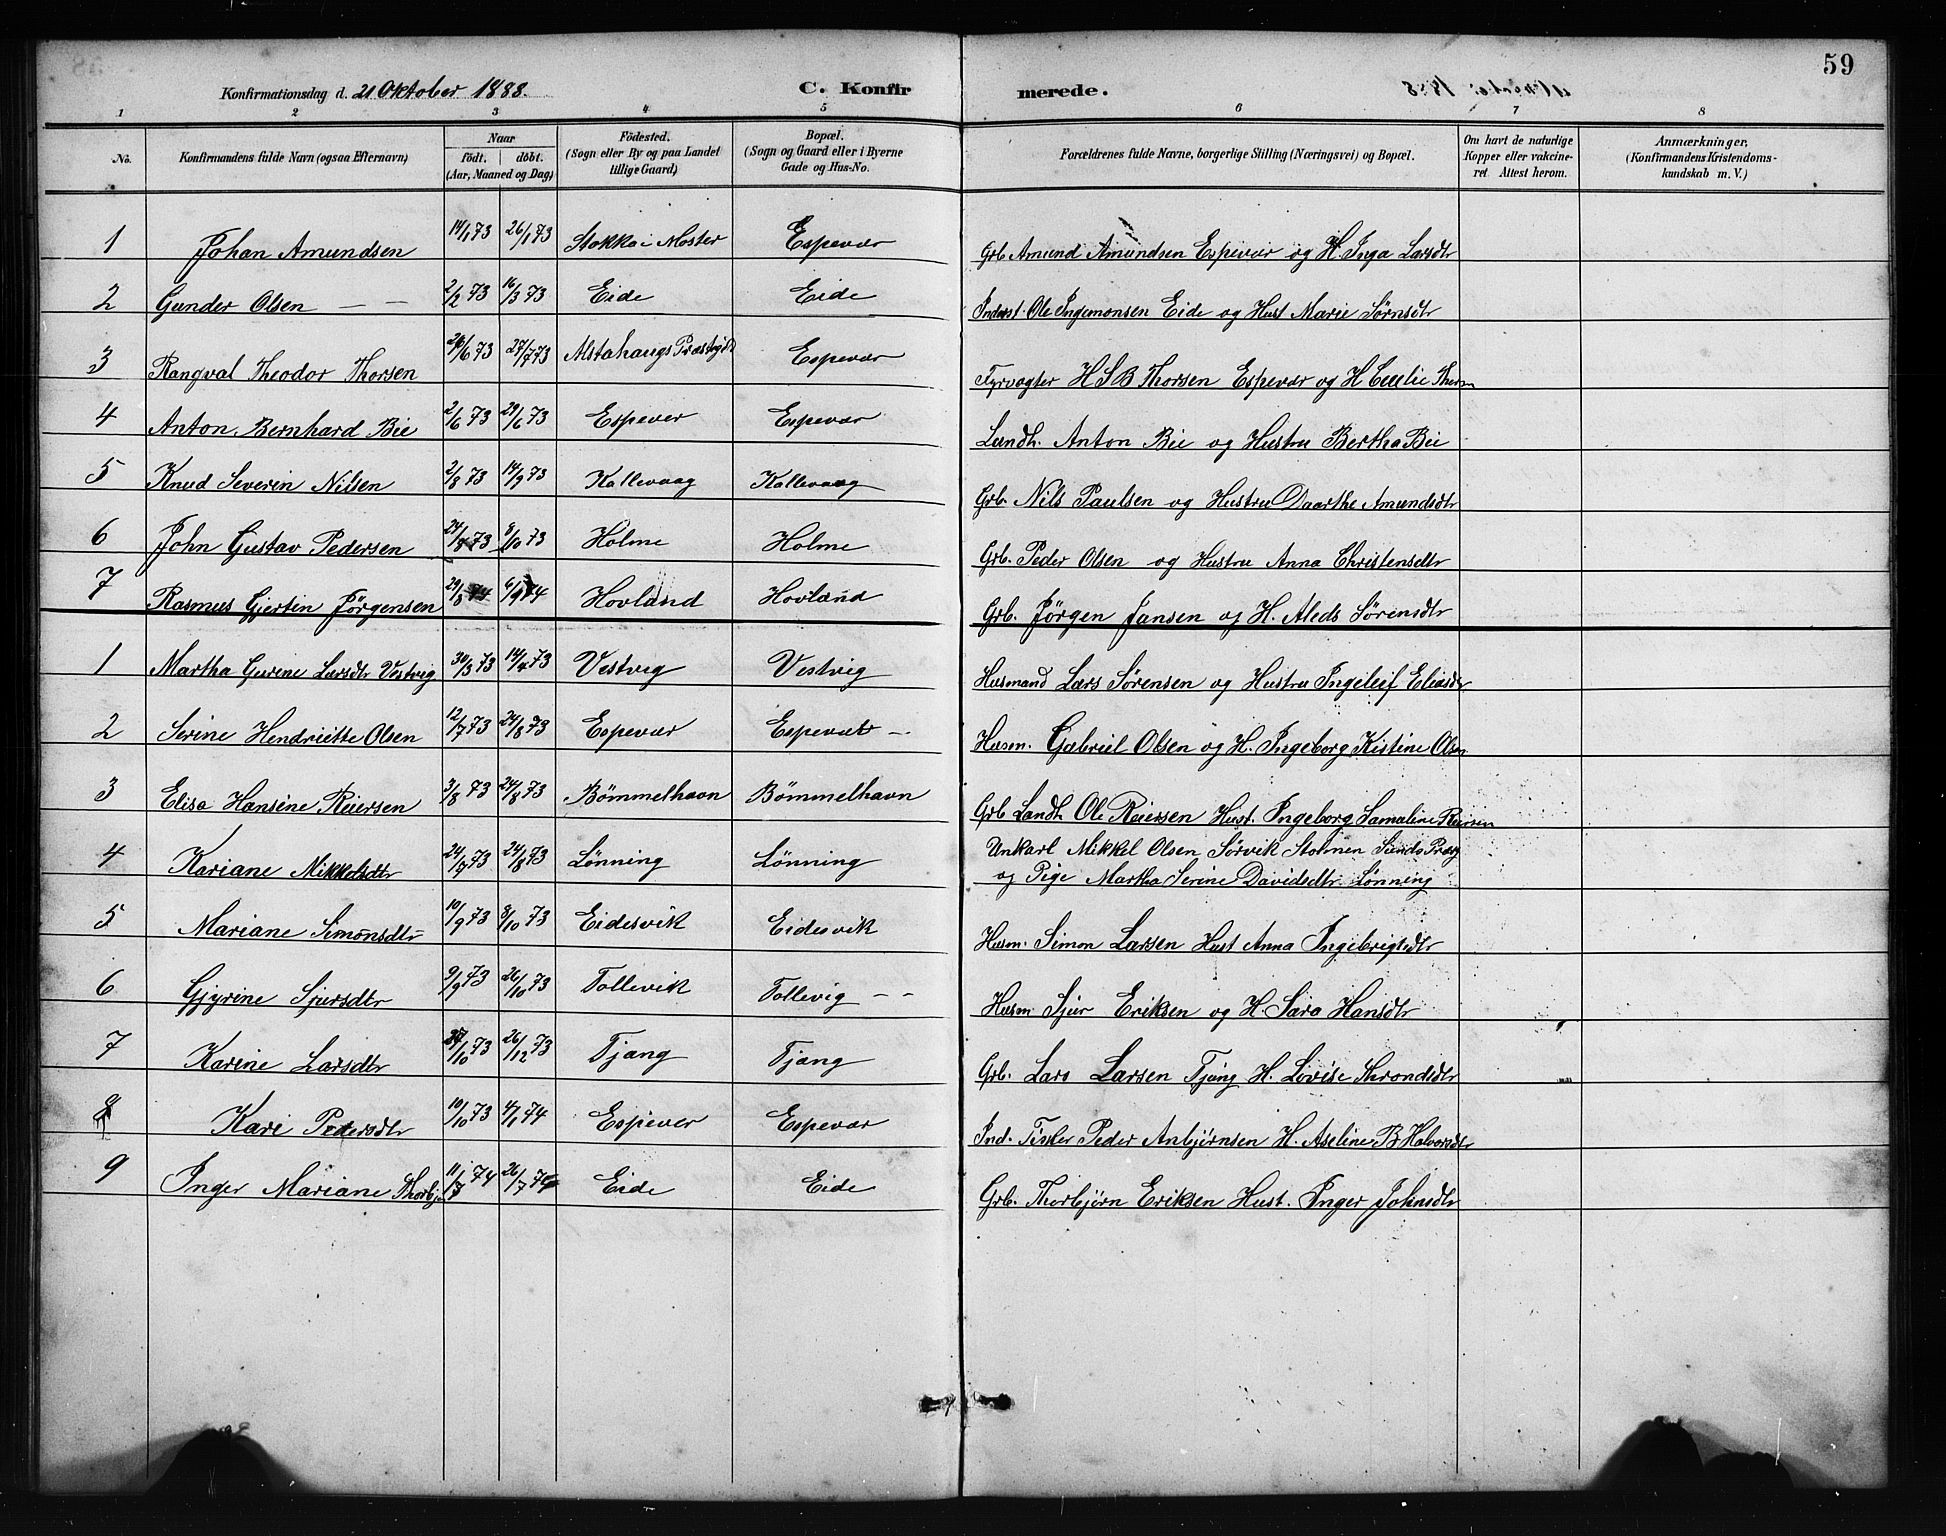 59
Konfirmationsdag d. 21 Oktober 1888. C. Konfirmerede.
1 2 3 4 5 6 7 8
No. Konfirmandens fulde Navn (ogsaa Efternavn) Naar födt. döbt. (Aar, Maaned og Dag) Födested. (Sogn eller By og paa Landet tillige Gaard) Bopæl. (Sogn og Gaard eller i Byerne Gade og Hus-No. Forældrenes fulde Navne, borgerlige Stilling (Næringsvei) og Bopæl. Om havt de naturlige Kopper eller vakcineret Attest herom. Anmærkninger, (Konfirmandens Kristendomskundskab m. V.)
1 Johan Amundsen 14/1 73 26/1 73 Stokke i Moster Espevær Grb Amund Amundsen Espevær og H. Inga Larsdtr
2 Gunder Olsen — — 2/2 73 16/3 73 Eide Eide Inderst. Ole Ingemonsen Eide og Hust Marie Sörnsdtr
3 Rangval Theodor Thorsen 26/6 73 27/7 73 Alstahaugs Præstegjd Espevær Fyrvogter H S B Thorsen Espevær og H Cecilie Thorsen
4 Anton Bernhard Bie 2/6 73 29/6 73 Espever Espevær Landh. Anton Bie og Hustru Bertha Bie
5 Knud Severin Nilsen 2/8 73 14/9 73 Kallevaag Kallevaag Grb. Nils Paulsen og Hustru Daarthe Amundsdtr
6 John Gustav Pedersen 24/8 73 8/10 73 Holme Holme Grb. Peder Olsen og Hustru Anna Christensdtr
7 Rasmus Gjertin Jörgensen 29/8 74 6/9 74 Hovland Hovland Grb. Jörgen Jansen og H. Aleds Sörensdtr
1 Martha Gurine Larsdtr Vestvig 30/3 73 14/4 73 Vestvig Vestvig Husmand Lars Sørensen og Hustru Ingeleif Eliasdtr
2 Serine Hendriette Olsen 12/7 73 24/8 73 Espevær Espevær — Husm. Gabriel Olsen og H. Ingeborg Kistine Olsen
3 Elisa Hansine Reiersen 3/8 73 24/8 73 Bömmelhavn Bömmelhavn Grb Landh Ole Reiersen Hust. Ingeborg Samaline Reiersen
4 Kariane Mikkelsdtr 24/7 73 24/8 73 Lönning Lönning Unkarl Mikkel Olsen Sörvik Stolmen Sunds Præg
og Pige Martha Serine Davidsdtr Lönning
5 Mariane Simonsdtr 10/9 73 8/10 73 Eidesvik Eidesvik Husm. Simon Larsen Hust Anna Ingebrigtsdtr
6 Gjyrine Sjursdtr 9/9 73 26/10 73 Tollevik Tollevig — — Husm Sjur Eriksen og H. Sara Hansdtr
7 Karine Larsdtr /10 73 26/12 73 Tjang Tjang Grb. Lars Larsen Tjang H. Lovise Throndsdtr
8 Kari Pedersdtr 10/10 73 4/1 74 Espever Espevær Ind. Fisker Peder Anbjörnsen H. Aseline B Halvorsdtr
9 Inger Mariane Thorbj 11/7 74 26/7 74 Eide Eide Grb. Thorbjörn Eriksen Hust. Inger Johnsdtr